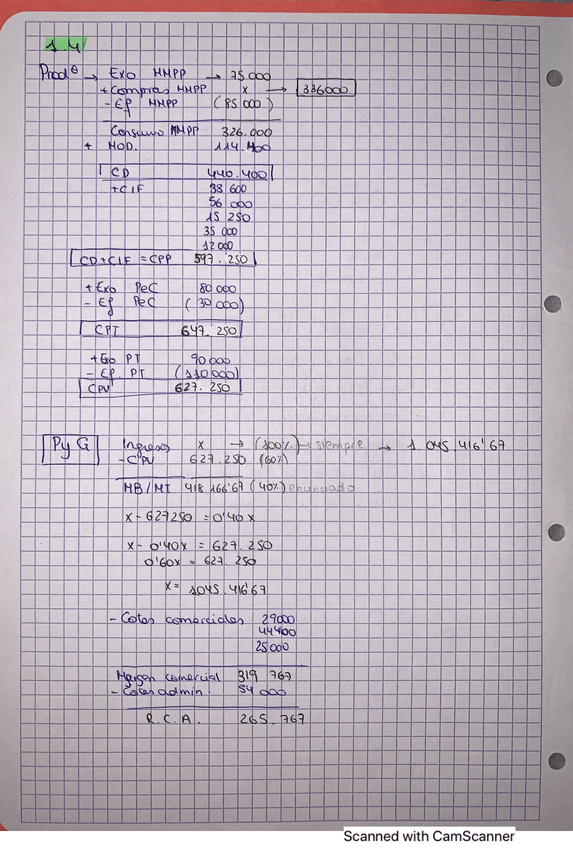 1.4
Prodᶿ → Exo MMPP → 75 000
+ Compras MMPP x → 336000
- Ef MMPP (85 000)
Consumo MMPP 326.000
+ MOD. 114.400
CD 440.400
+ CIF 38 600
56 000
15 250
35 000
12 000
CD + CIF = CPP 597.250
+ Exo PeC 80 000
- Ef PeC (30 000)
CPT 647.250
+ Exo PT 90 000
- Ef PT (110 000)
CPV 627.250
PyG Ingreso x → (100%) → siempre → 1.045.416'67
- CPV 627.250 (60%)
MB/MI 418 166'67 (40%) enunciado
x - 627250 = 0'40 x
x - 0'40x = 627.250
0'60x = 627.250
x = 1045.416'67
- Cotes comerciales 29000
44400
25000
Margen comercial 319 767
- Costes admin. 54 000
R.C.A. 265.767
Scanned with CamScanner